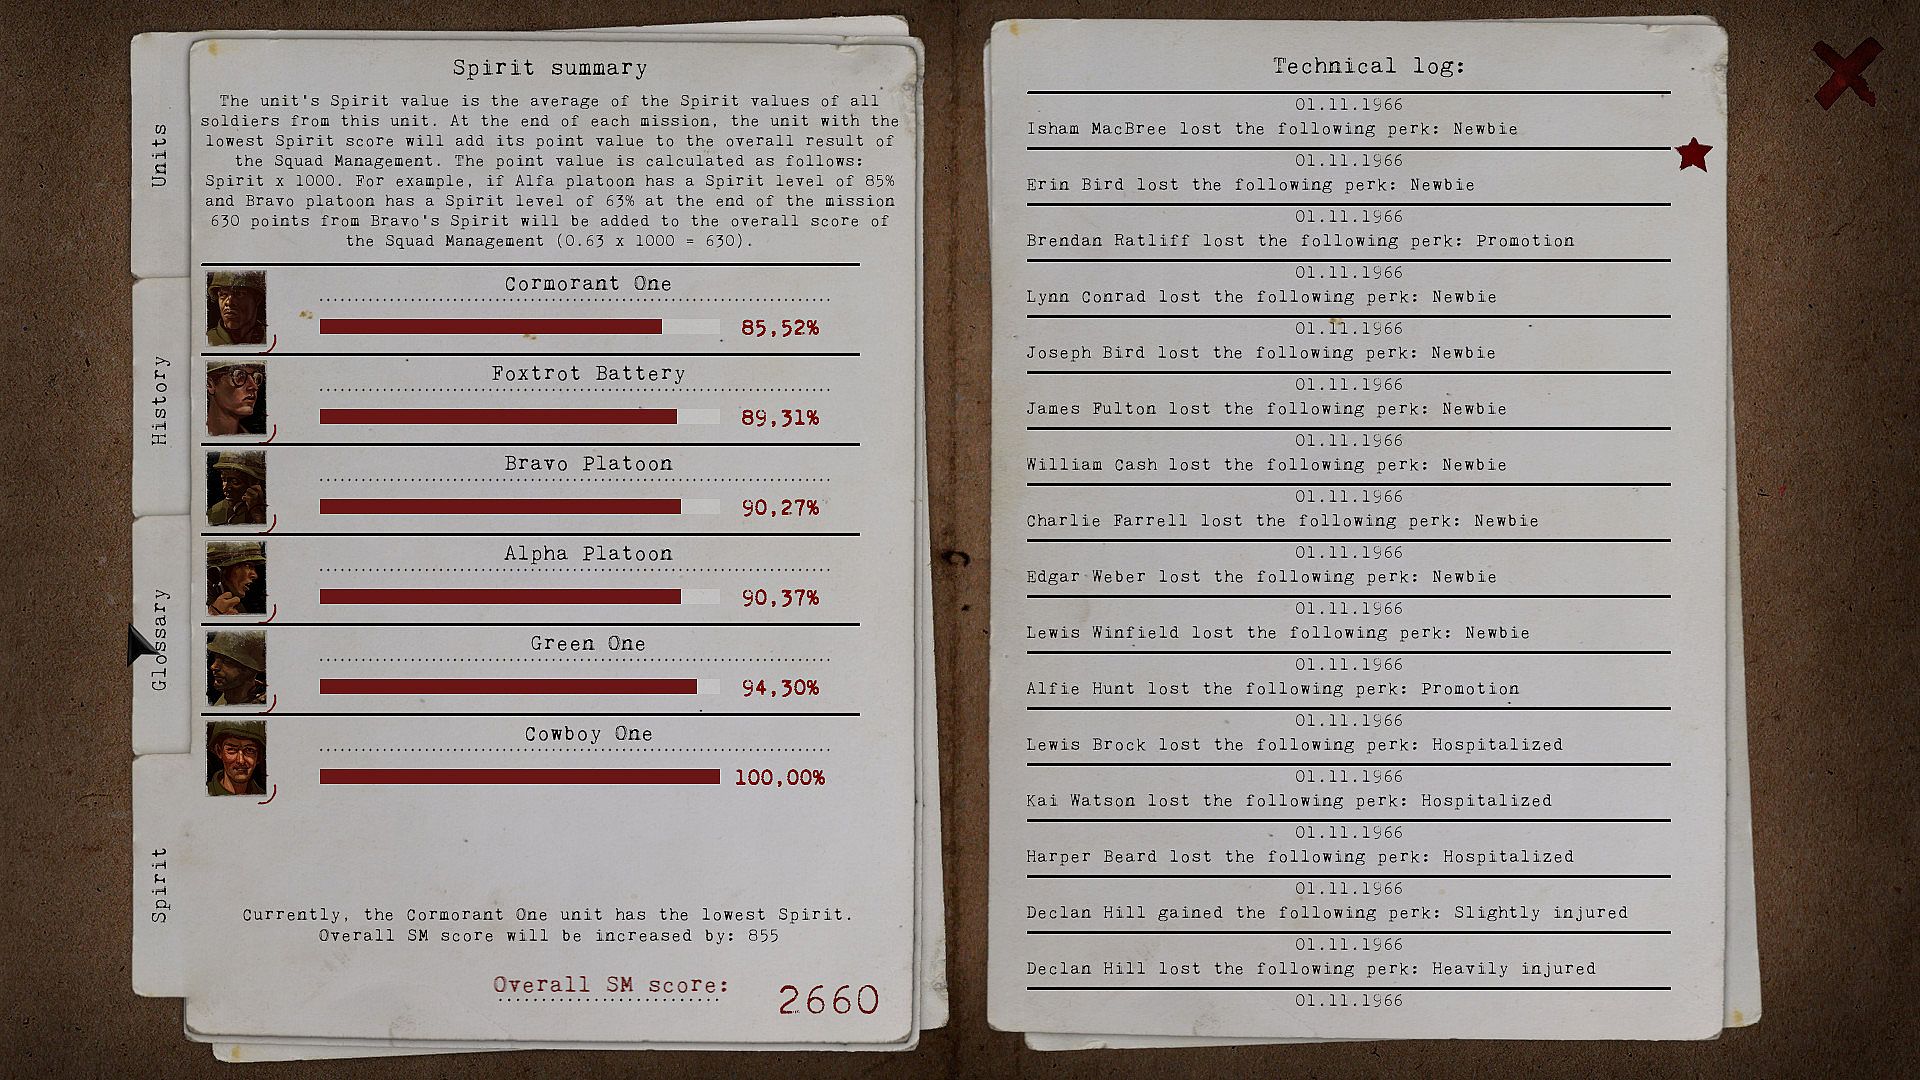 Units
History
Glossary
Spirit
Spirit summary
The unit's Spirit value is the average of the Spirit values of all
soldiers from this unit. At the end of each mission, the unit with the
lowest Spirit score will add its point value to the overall result of
the Squad Management. The point value is calculated as follows:
Spirit x 1000. For example, if Alfa platoon has a Spirit level of 85%
and Bravo platoon has a Spirit level of 63% at the end of the mission
630 points from Bravo's Spirit will be added to the overall score of
the Squad Management (0.63 x 1000 = 630).
Cormorant One
85,52%
Foxtrot Battery
89,31%
Bravo Platoon
90,27%
Alpha Platoon
90,37%
Green One
94,30%
Cowboy One
100,00%
Currently, the Cormorant One unit has the lowest Spirit.
Overall SM score will be increased by: 855
Overall SM score: 2660
Technical log:
01.11.1966
Isham MacBree lost the following perk: Newbie
01.11.1966
Erin Bird lost the following perk: Newbie
01.11.1966
Brendan Ratliff lost the following perk: Promotion
01.11.1966
Lynn Conrad lost the following perk: Newbie
01.11.1966
Joseph Bird lost the following perk: Newbie
01.11.1966
James Fulton lost the following perk: Newbie
01.11.1966
William Cash lost the following perk: Newbie
01.11.1966
Charlie Farrell lost the following perk: Newbie
01.11.1966
Edgar Weber lost the following perk: Newbie
01.11.1966
Lewis Winfield lost the following perk: Newbie
01.11.1966
Alfie Hunt lost the following perk: Promotion
01.11.1966
Lewis Brock lost the following perk: Hospitalized
01.11.1966
Kai Watson lost the following perk: Hospitalized
01.11.1966
Harper Beard lost the following perk: Hospitalized
01.11.1966
Declan Hill gained the following perk: Slightly injured
01.11.1966
Declan Hill lost the following perk: Heavily injured
01.11.1966